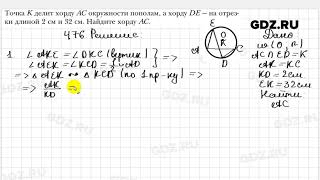 Точка K делит хорду AC окружности пополам, а хорду DE – на отрез-
ки длиной 2 см и 32 см. Найдите хорду AC.
GDZ.RU
476. Решение:
1. ∠AKE = ∠DKC (вертик.) =>
∠AEK = ∠KCD = ½ ◡AD
=> △AEK ∾ △KCD (по 1 пр-ку) =>
=> AK/KD =
Дано
AC∩DE=K
AK=KC
KD=2см
EK=32см
Найти
AC
GDZ.RU